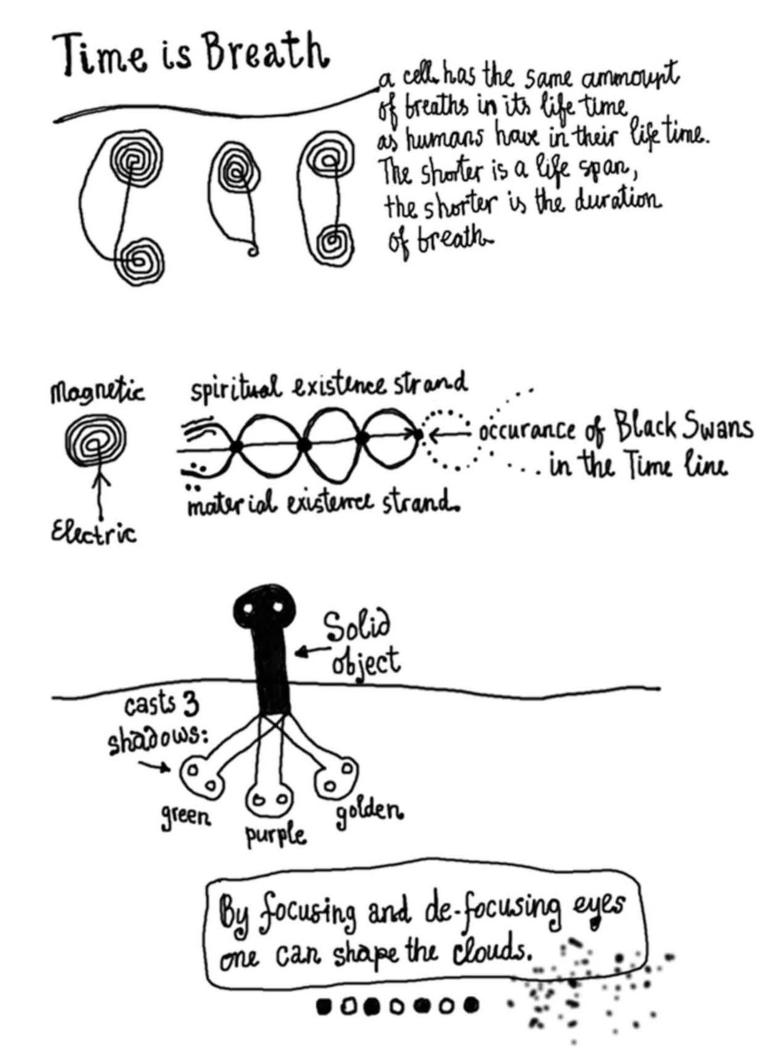 Time is Breath
a cell has the same ammount
of breaths in its life time
as humans have in their life time.
The shorter is a life span,
the shorter is the duration
of breath.
Magnetic
Electric
spiritual existence strand
occurance of Black Swans
in the Time line
material existence strand.
Solid
object
casts 3
shadows:
green
purple
golden
By focusing and de-focusing eyes
one can shape the clouds.